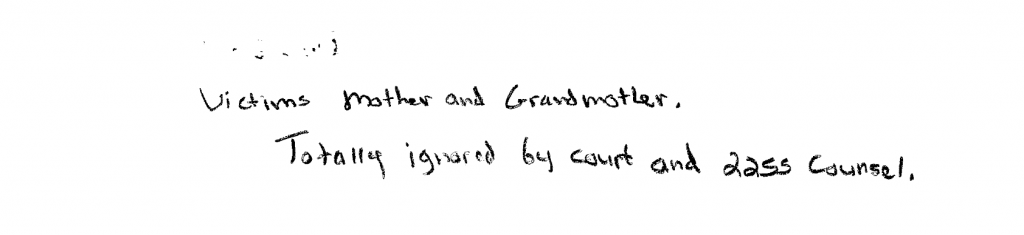 Victims mother and Grandmother.
Totally ignored by court and 2255 Counsel.